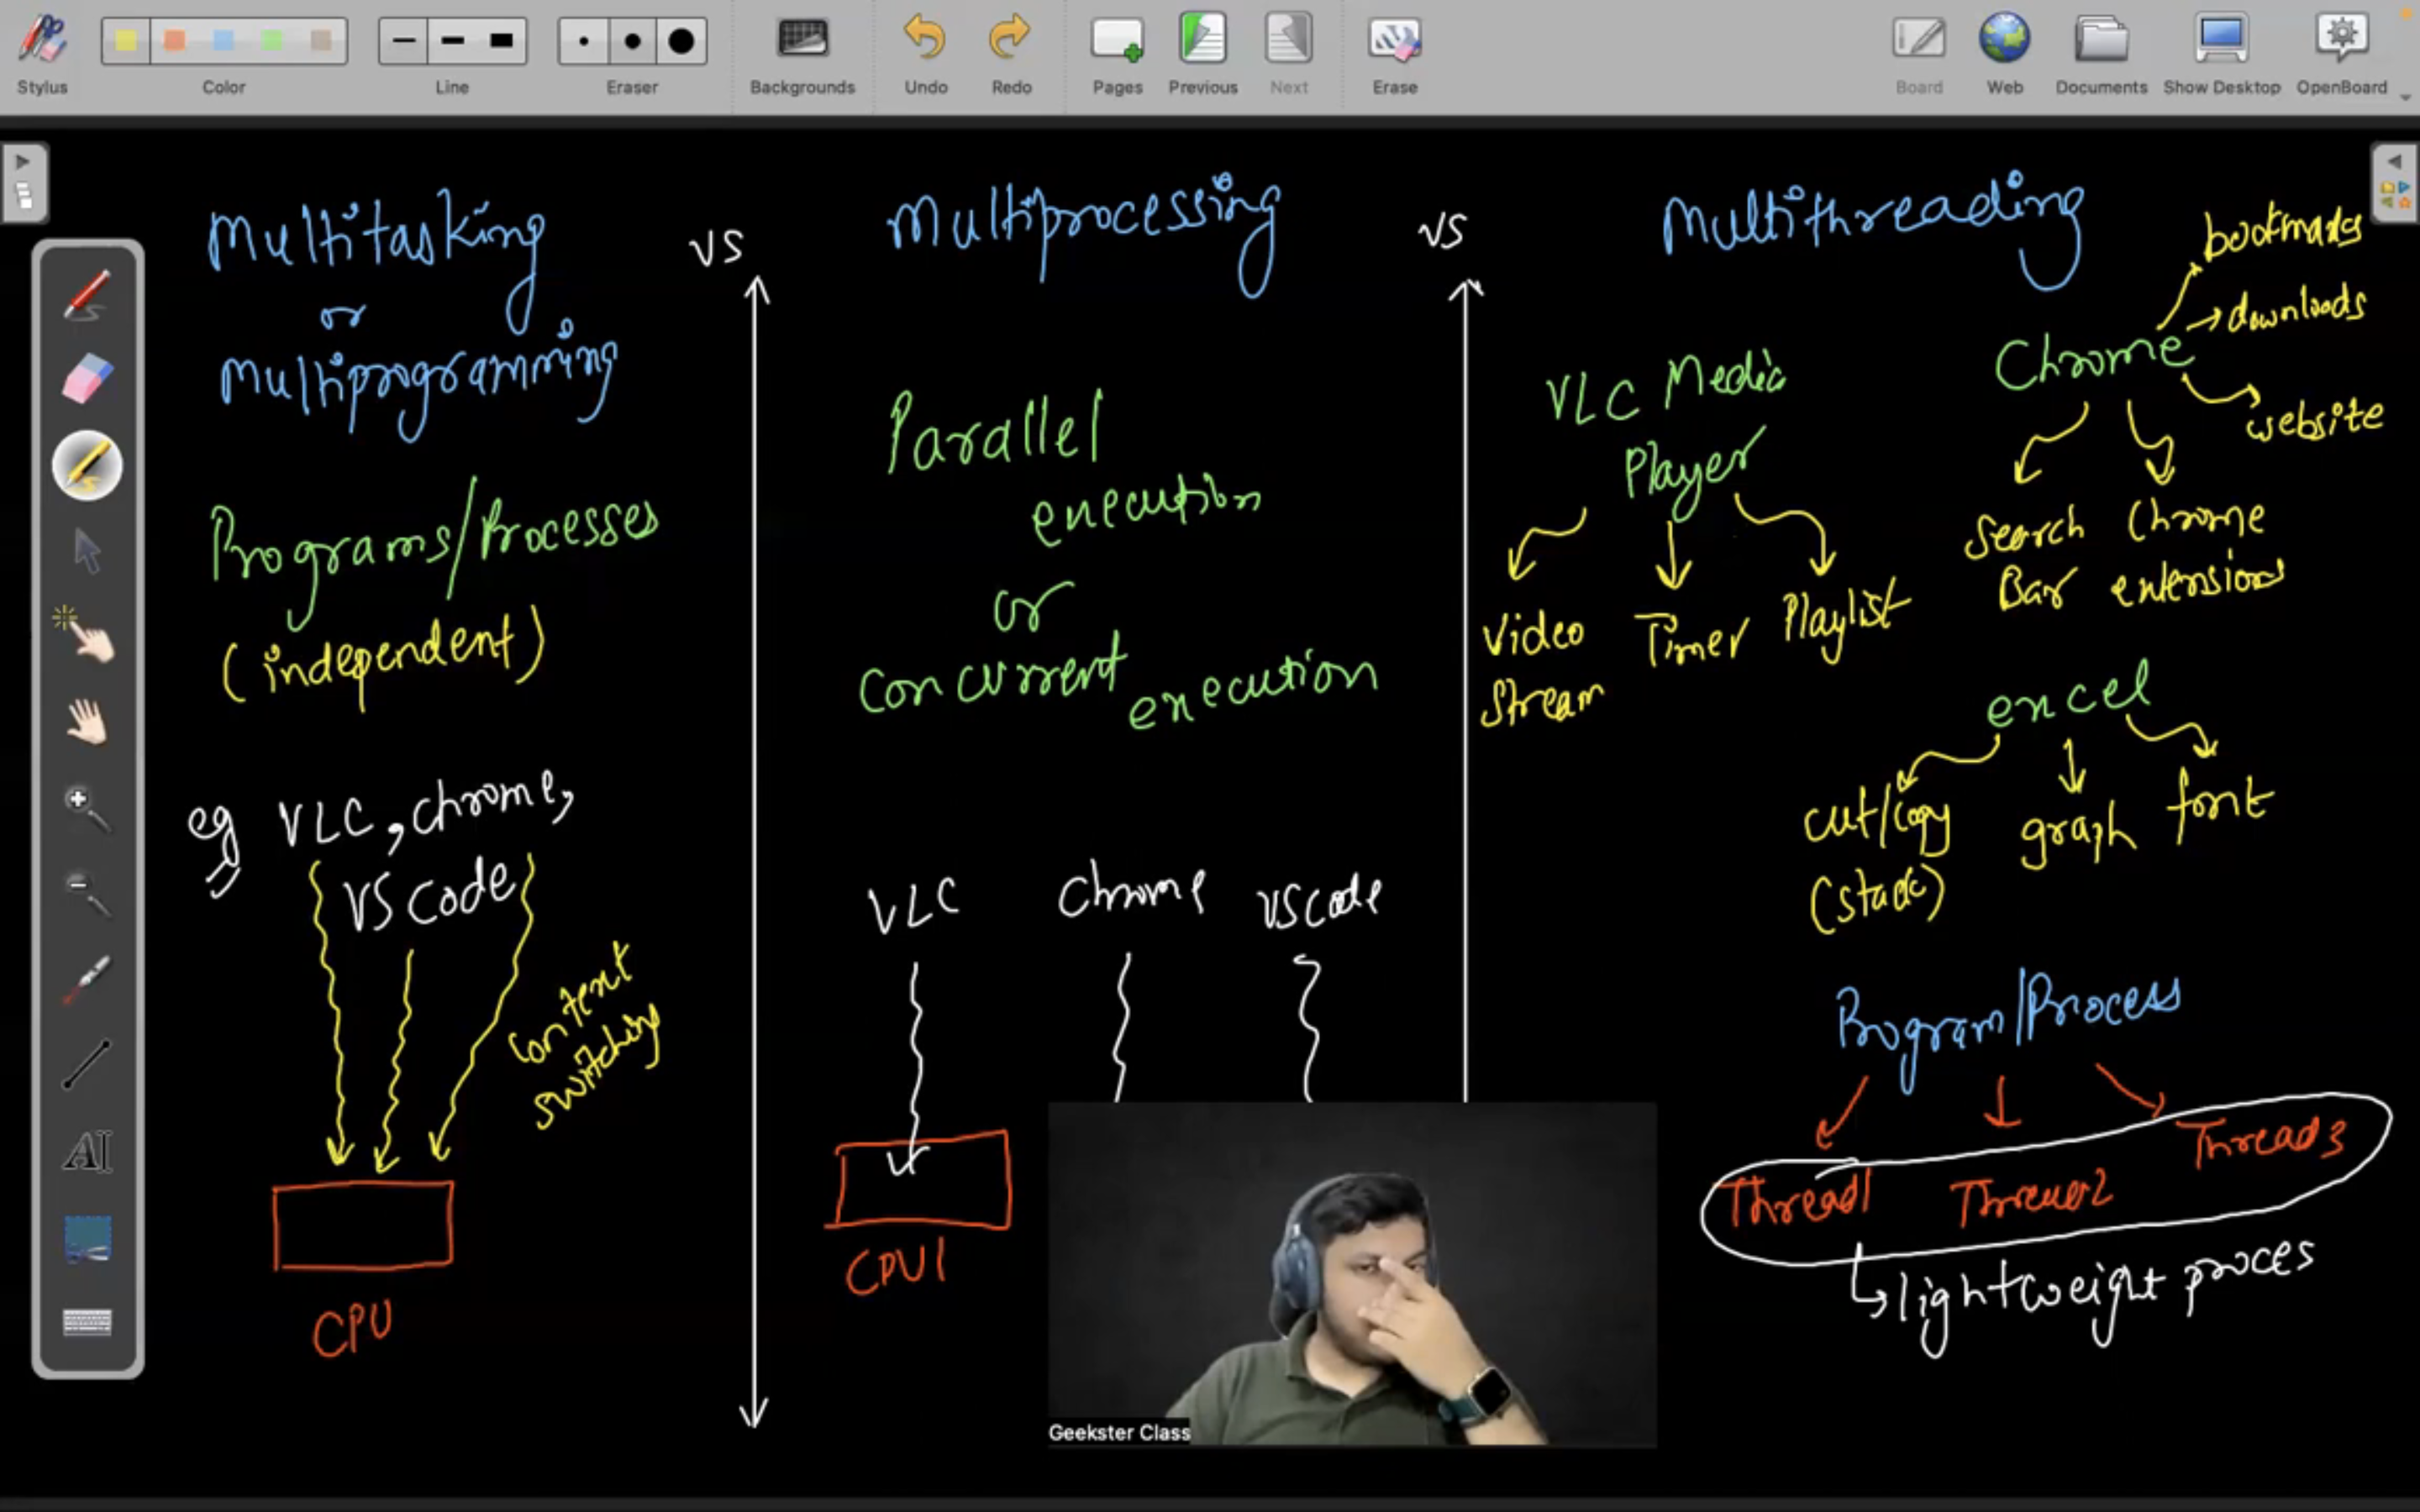 Stylus
Color
Line
Eraser
Backgrounds
Undo
Redo
Pages
Previous
Next
Erase
Board
Web
Documents
Show Desktop
OpenBoard
Multitasking
or
Multiprogramming
Programs/Processes
(independent)
eg VLC, chrome,
VS Code
context
switching
CPU
VS
Multiprocessing
Parallel
execution
or
concurrent execution
VLC
Chrome
VScode
CPU1
VS
Multithreading
VLC Media
Player
Video
Stream
Timer
Playlist
Chrome
bookmarks
downloads
website
Search
Bar
Chrome
extensions
excel
cut/copy
(stack)
graph
font
Program/Process
Thread1
Thread2
Thread3
lightweight proces
AI
Geekster Class